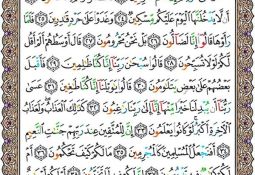 أَن لَّا يَدْخُلَنَّهَا ٱلْيَوْمَ عَلَيْكُم مِّسْكِينٌ ٢٤ وَغَدَوْا۟ عَلَىٰ حَرْدٍ قَٰدِرِينَ ٢٥ فَلَمَّا
رَأَوْهَا قَالُوٓا۟ إِنَّا لَضَآلُّونَ ٢٦ بَلْ نَحْنُ مَحْرُومُونَ ٢٧ قَالَ أَوْسَطُهُمْ أَلَمْ أَقُل
لَّكُمْ لَوْلَا تُسَبِّحُونَ ٢٨ قَالُوا۟ سُبْحَٰنَ رَبِّنَآ إِنَّا كُنَّا ظَٰلِمِينَ ٢٩ فَأَقْبَلَ
بَعْضُهُمْ عَلَىٰ بَعْضٍ يَتَلَٰوَمُونَ ٣٠ قَالُوا۟ يَٰوَيْلَنَآ إِنَّا كُنَّا طَٰغِينَ ٣١ عَسَىٰ
رَبُّنَآ أَن يُبْدِلَنَا خَيْرًا مِّنْهَآ إِنَّآ إِلَىٰ رَبِّنَا رَٰغِبُونَ ٣٢ كَذَٰلِكَ ٱلْعَذَابُ وَلَعَذَابُ
ٱلْءَاخِرَةِ أَكْبَرُ لَوْ كَانُوا۟ يَعْلَمُونَ ٣٣ إِنَّ لِلْمُتَّقِينَ عِندَ رَبِّهِمْ جَنَّٰتِ ٱلنَّعِيمِ
٣٤ أَفَنَجْعَلُ ٱلْمُسْلِمِينَ كَٱلْمُجْرِمِينَ ٣٥ مَا لَكُمْ كَيْفَ تَحْكُمُونَ ٣٦